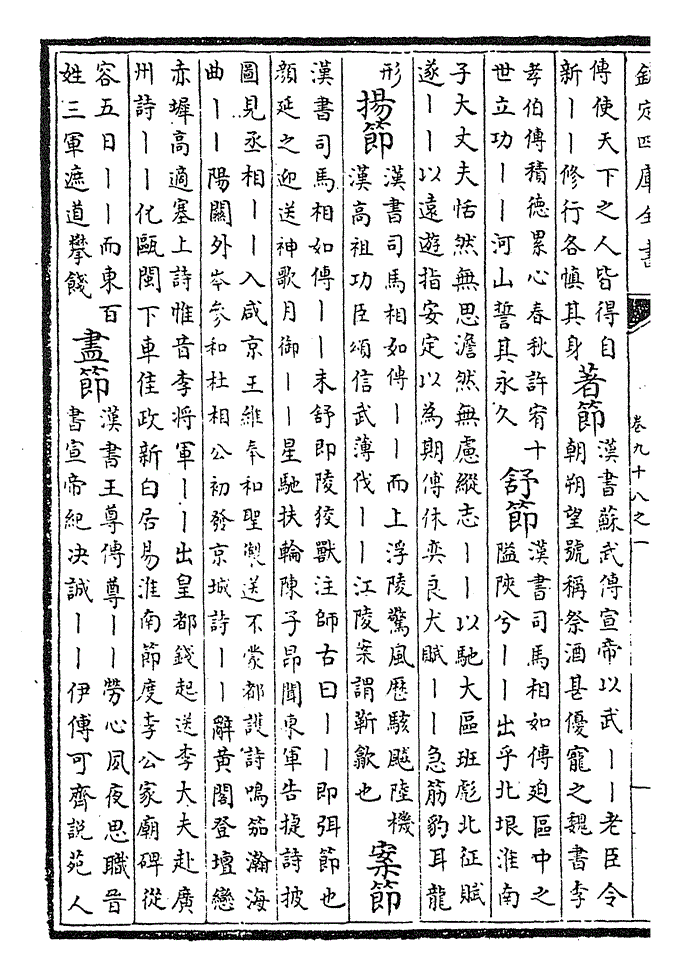 欽定四庫全書
卷九十八之一
傳使天下之人皆得自
新丨丨修行各慎其身
著節
漢書蘇武傳宣帝以武丨丨老臣令
朝朔望號稱祭酒甚優寵之魏書李
孝伯傳積德累心春秋許宥十
世立功丨丨河山誓其永久
舒節
漢書司馬相如傳迫區中之
隘陜兮丨丨出乎北垠淮南
子大丈夫恬然無思澹然無慮縱志丨丨以馳大區班彪北征賦
遂丨丨以遠遊指安定以為期傅休奕良犬賦丨丨急筋豹耳龍
形
揚節
漢書司馬相如傳丨丨而上浮陵驚風歷駭飈陸機
漢高祖功臣頌信武薄伐丨丨江陵案謂靳歙也
案節
漢書司馬相如傳丨丨未舒即陵狡獸注師古曰丨丨即弭節也
顔延之迎送神歌月御丨丨星馳扶輪陳子昂聞東軍告捷詩披
圖見丞相丨丨入咸京王維奉和聖製送不蒙都護詩鳴笳瀚海
曲丨丨陽關外岑參和杜相公初發京城詩丨丨辭黄閣登壇戀
赤墀高適塞上詩惟昔李將軍丨丨出皇都錢起送李大夫赴廣
州詩丨丨化甌閩下車佳政新白居易淮南節度李公家廟碑從
容五日丨丨而東百
姓三軍遮道攀餞
盡節
漢書王尊傳尊丨丨勞心夙夜思職晉
書宣帝紀決誠丨丨伊傅可齊說苑人